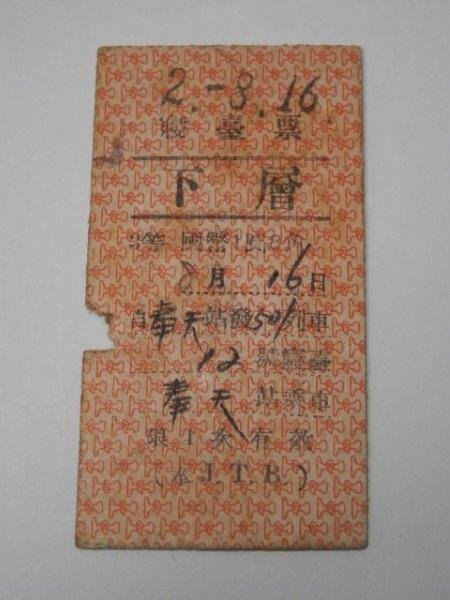 2.-8.16
寢臺票
下層
2等 國幣1圓8角
8月16日
自奉天站發501列車
12
奉天站乘車
限1次有效
(奉J.T.B.)